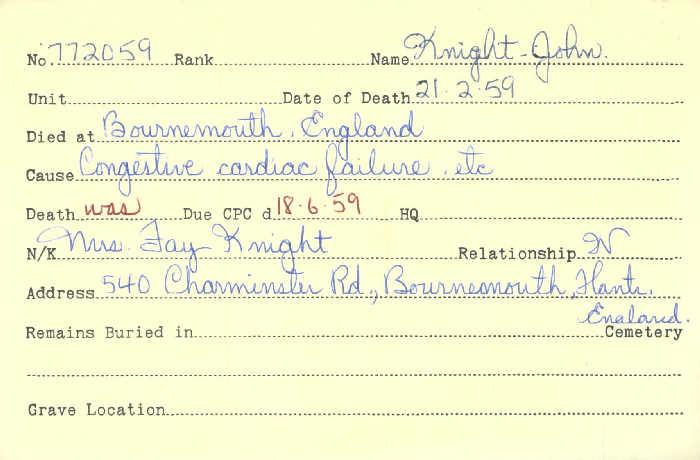 No. 772059 Rank Name Knight - John.
Unit Date of Death 21.2.59
Died at Bournemouth, England
Cause Congestive cardiac failure, etc
Death was Due CPC d 18.6.59 HQ
N/K Mrs. Fay Knight Relationship W
Address 540 Charminster Rd., Bournemouth, Hants. England.
Remains Buried in Cemetery
Grave Location